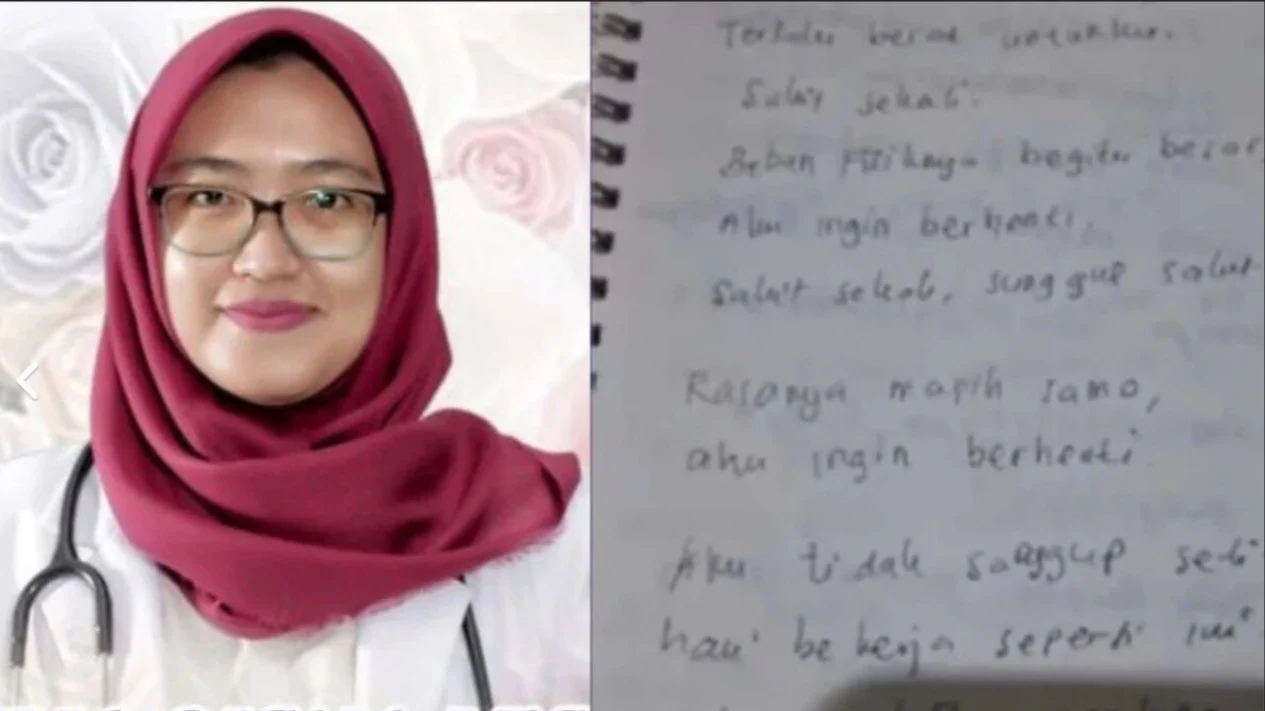 Terlalu berat untukku.
Sakit sekali.
Beban fisiknya begitu besar,
Aku ingin berhenti.
Sakit sekali, sungguh sakit
Rasanya masih sama,
aku ingin berhenti
Aku tidak sanggup seti
hari bekerja seperti ini